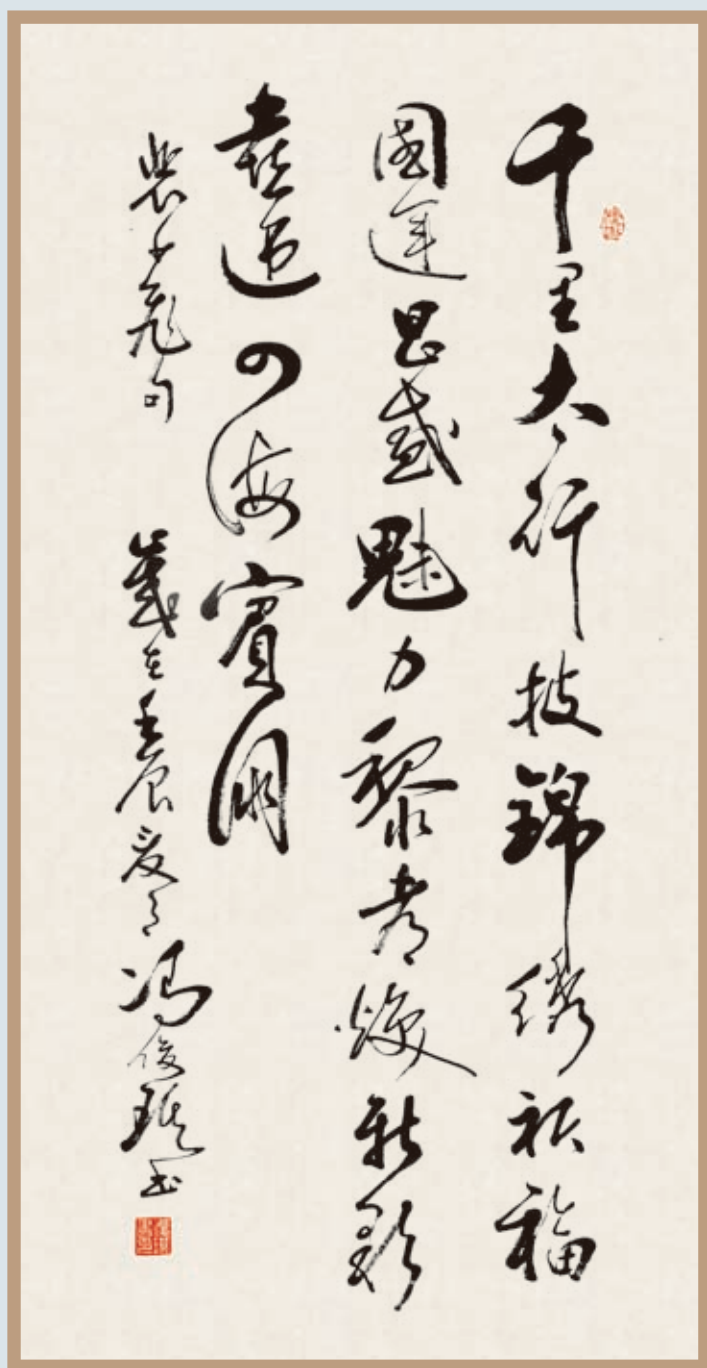 千里太行披锦绣祈福
國运昌盛魅力黎都焕新彩
喜迎四海宾朋
裴少飛句 岁在壬辰夏月冯俊 书